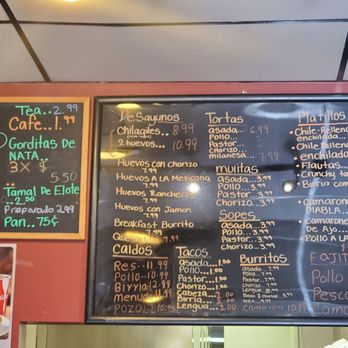 Tea..2.99
Cafe..1.99
Gorditas De
NATA.
3x $
5.50
Tamal De Elote
..2.50
Preparado 2.99
Pan.. 75¢
Desayunos
Chilaquiles..8.99
2 huevos.. 10.99
Huevos con Chorizo
7.99
Huevos A La Mexicana
7.99
Huevos Rancheros
7.99
Huevos con Jamon
7.99
Breakfast Burrito
Caldos
Res..11.99
Pollo..10.99
Birria 12.99
menudo 11.99
POZOLE
Tortas
asada... 6.99
Pollo...
Pastor...
Chorizo..
milanesa.. 7.99
mulitas
asada...3.99
Pollo...3.99
Pastor...3.99
Chorizo..3.99
Sopes
asada...3.99
Pollo...3.99
Pastor...3.99
Chorizo..3.99
Tacos
asada..1.50
Pollo..1.50
Pastor..1.50
Chorizo..1.50
Cabeza..2.00
Birria..
Lengua..2.00
Burritos
asada...7.99
Pollo...7.99
Pastor...7.99
Chorizo...7.99
Bean & cheese
Lengua
camaron 10.99
Platillos
Chile-Relleno
enchilada
Chile Relleno
enchilada
Flautas
Crunchy
Birria
camaron
DIABLA
Camaron
De Ajo
Pollo A LA
Fajit
Pollo
Pesc